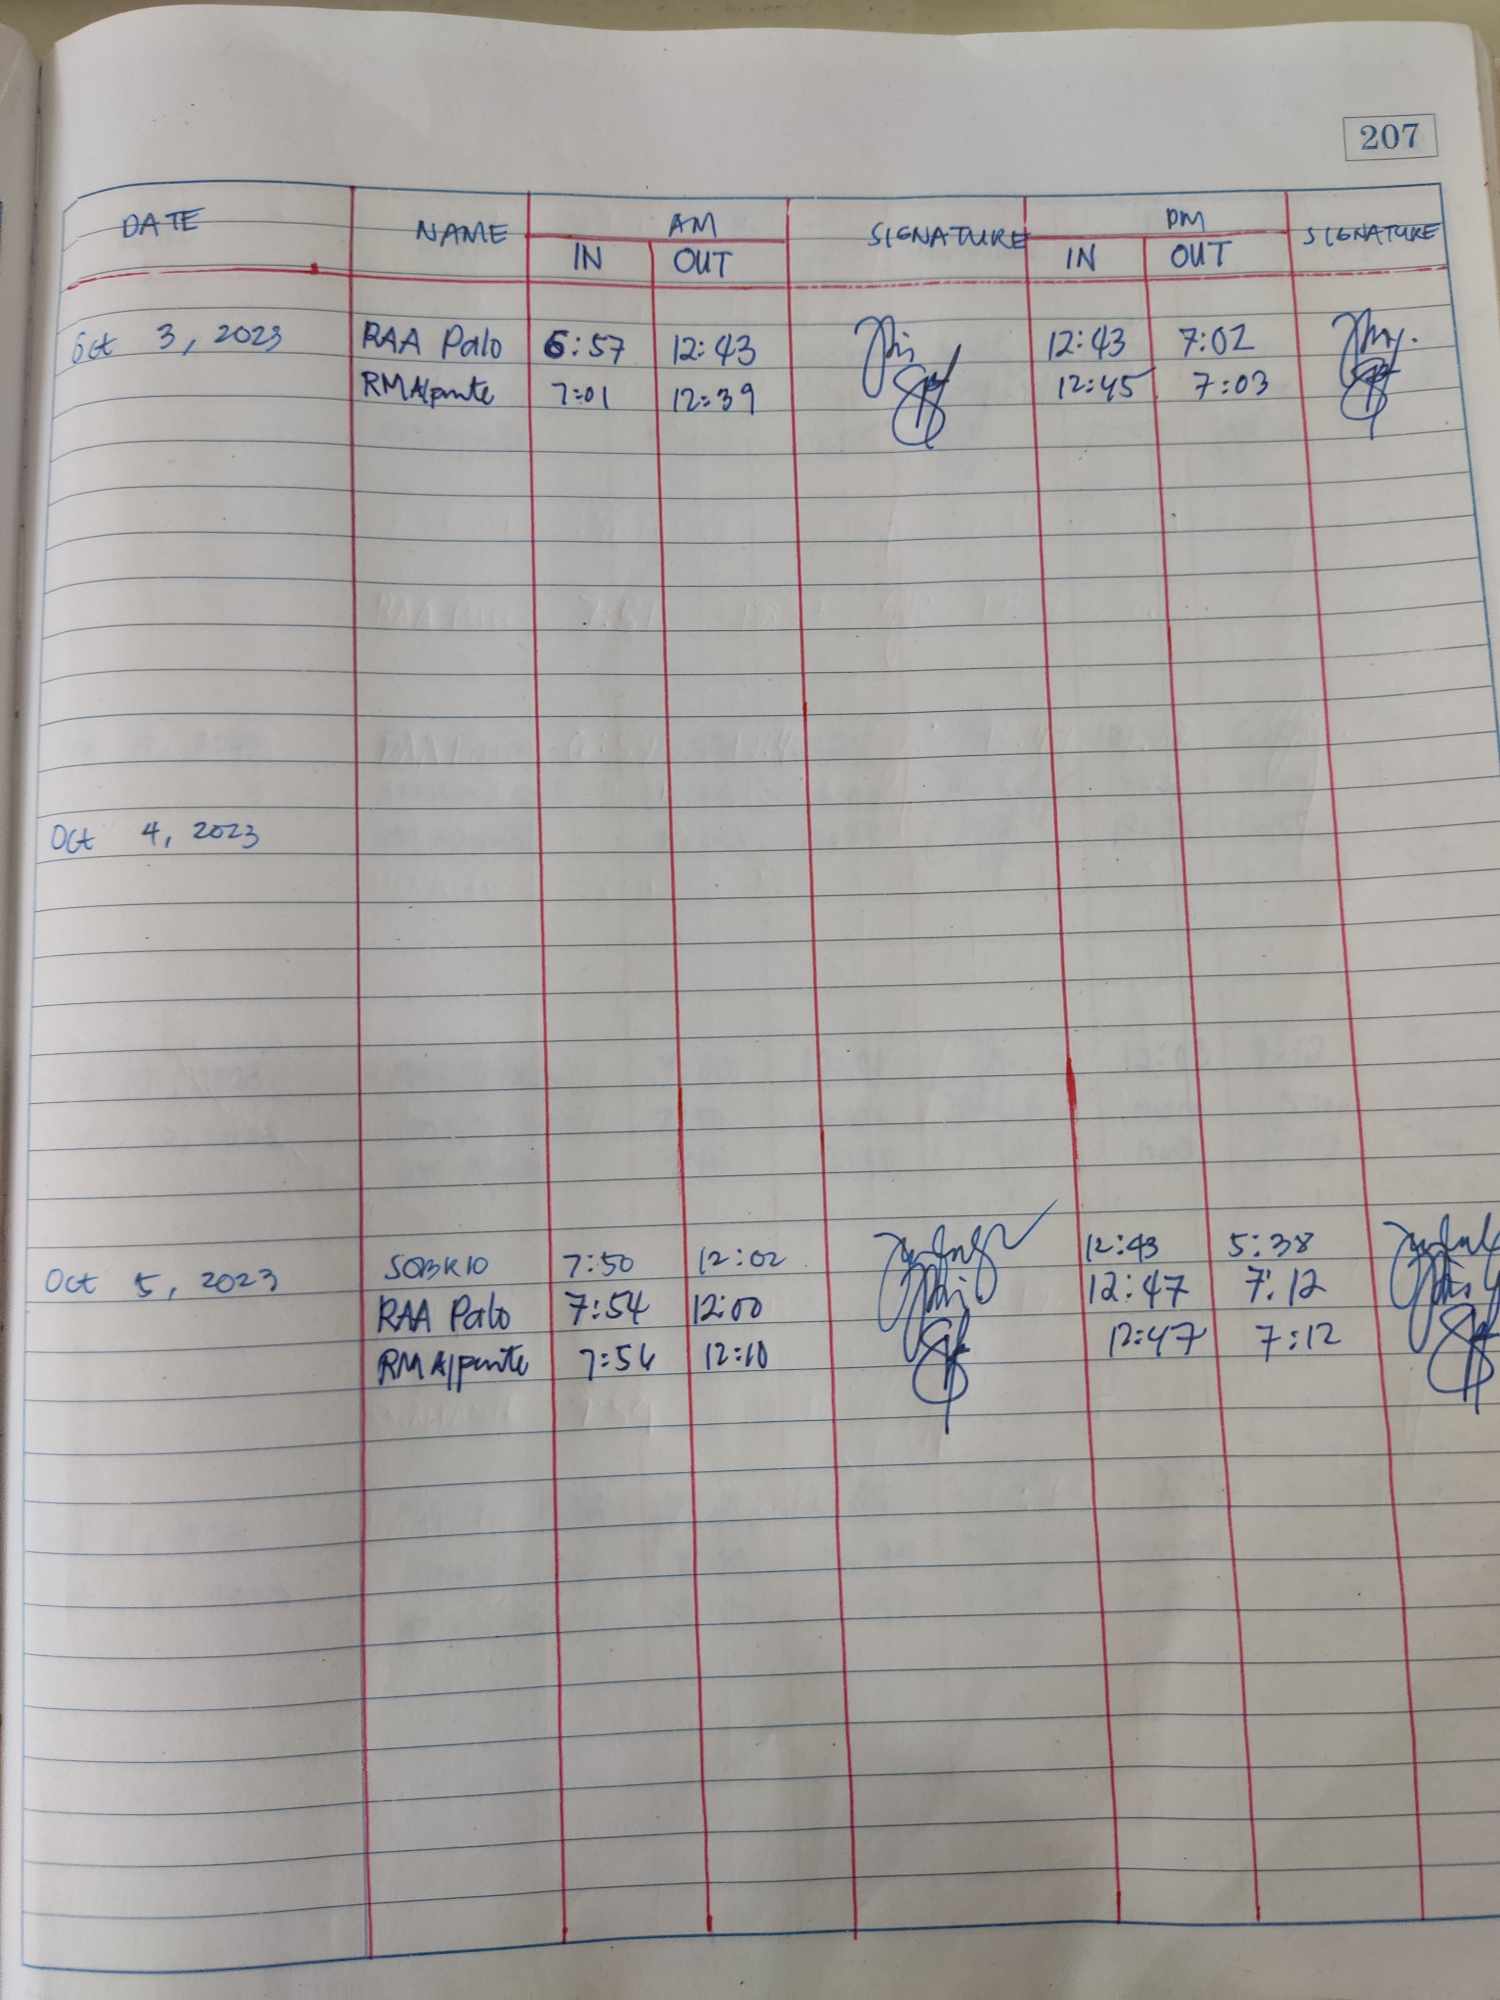 207
DATE NAME AM SIGNATURE PM SIGNATURE
IN OUT IN OUT
Oct 3, 2023 RAA Palo 6:57 12:43 12:43 7:02
RMAlpante 7:01 12:39 12:45 7:03
Oct 4, 2023
Oct 5, 2023 7:50 12:02 12:43 5:38
RAA Palo 7:54 12:00 12:47 7:12
RMAlpante 7:56 12:10 12:47 7:12